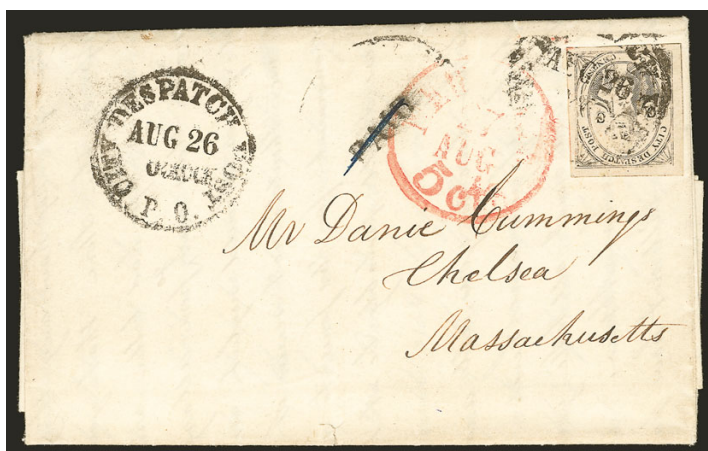 CITY DESPATCH POST
AUG 26
O'CLOCK
P. O.
PAID
AUG
5 cts
CITY DESPATCH POST
CENTS
Mr Danie Cummings
Chelsea
Massachusetts